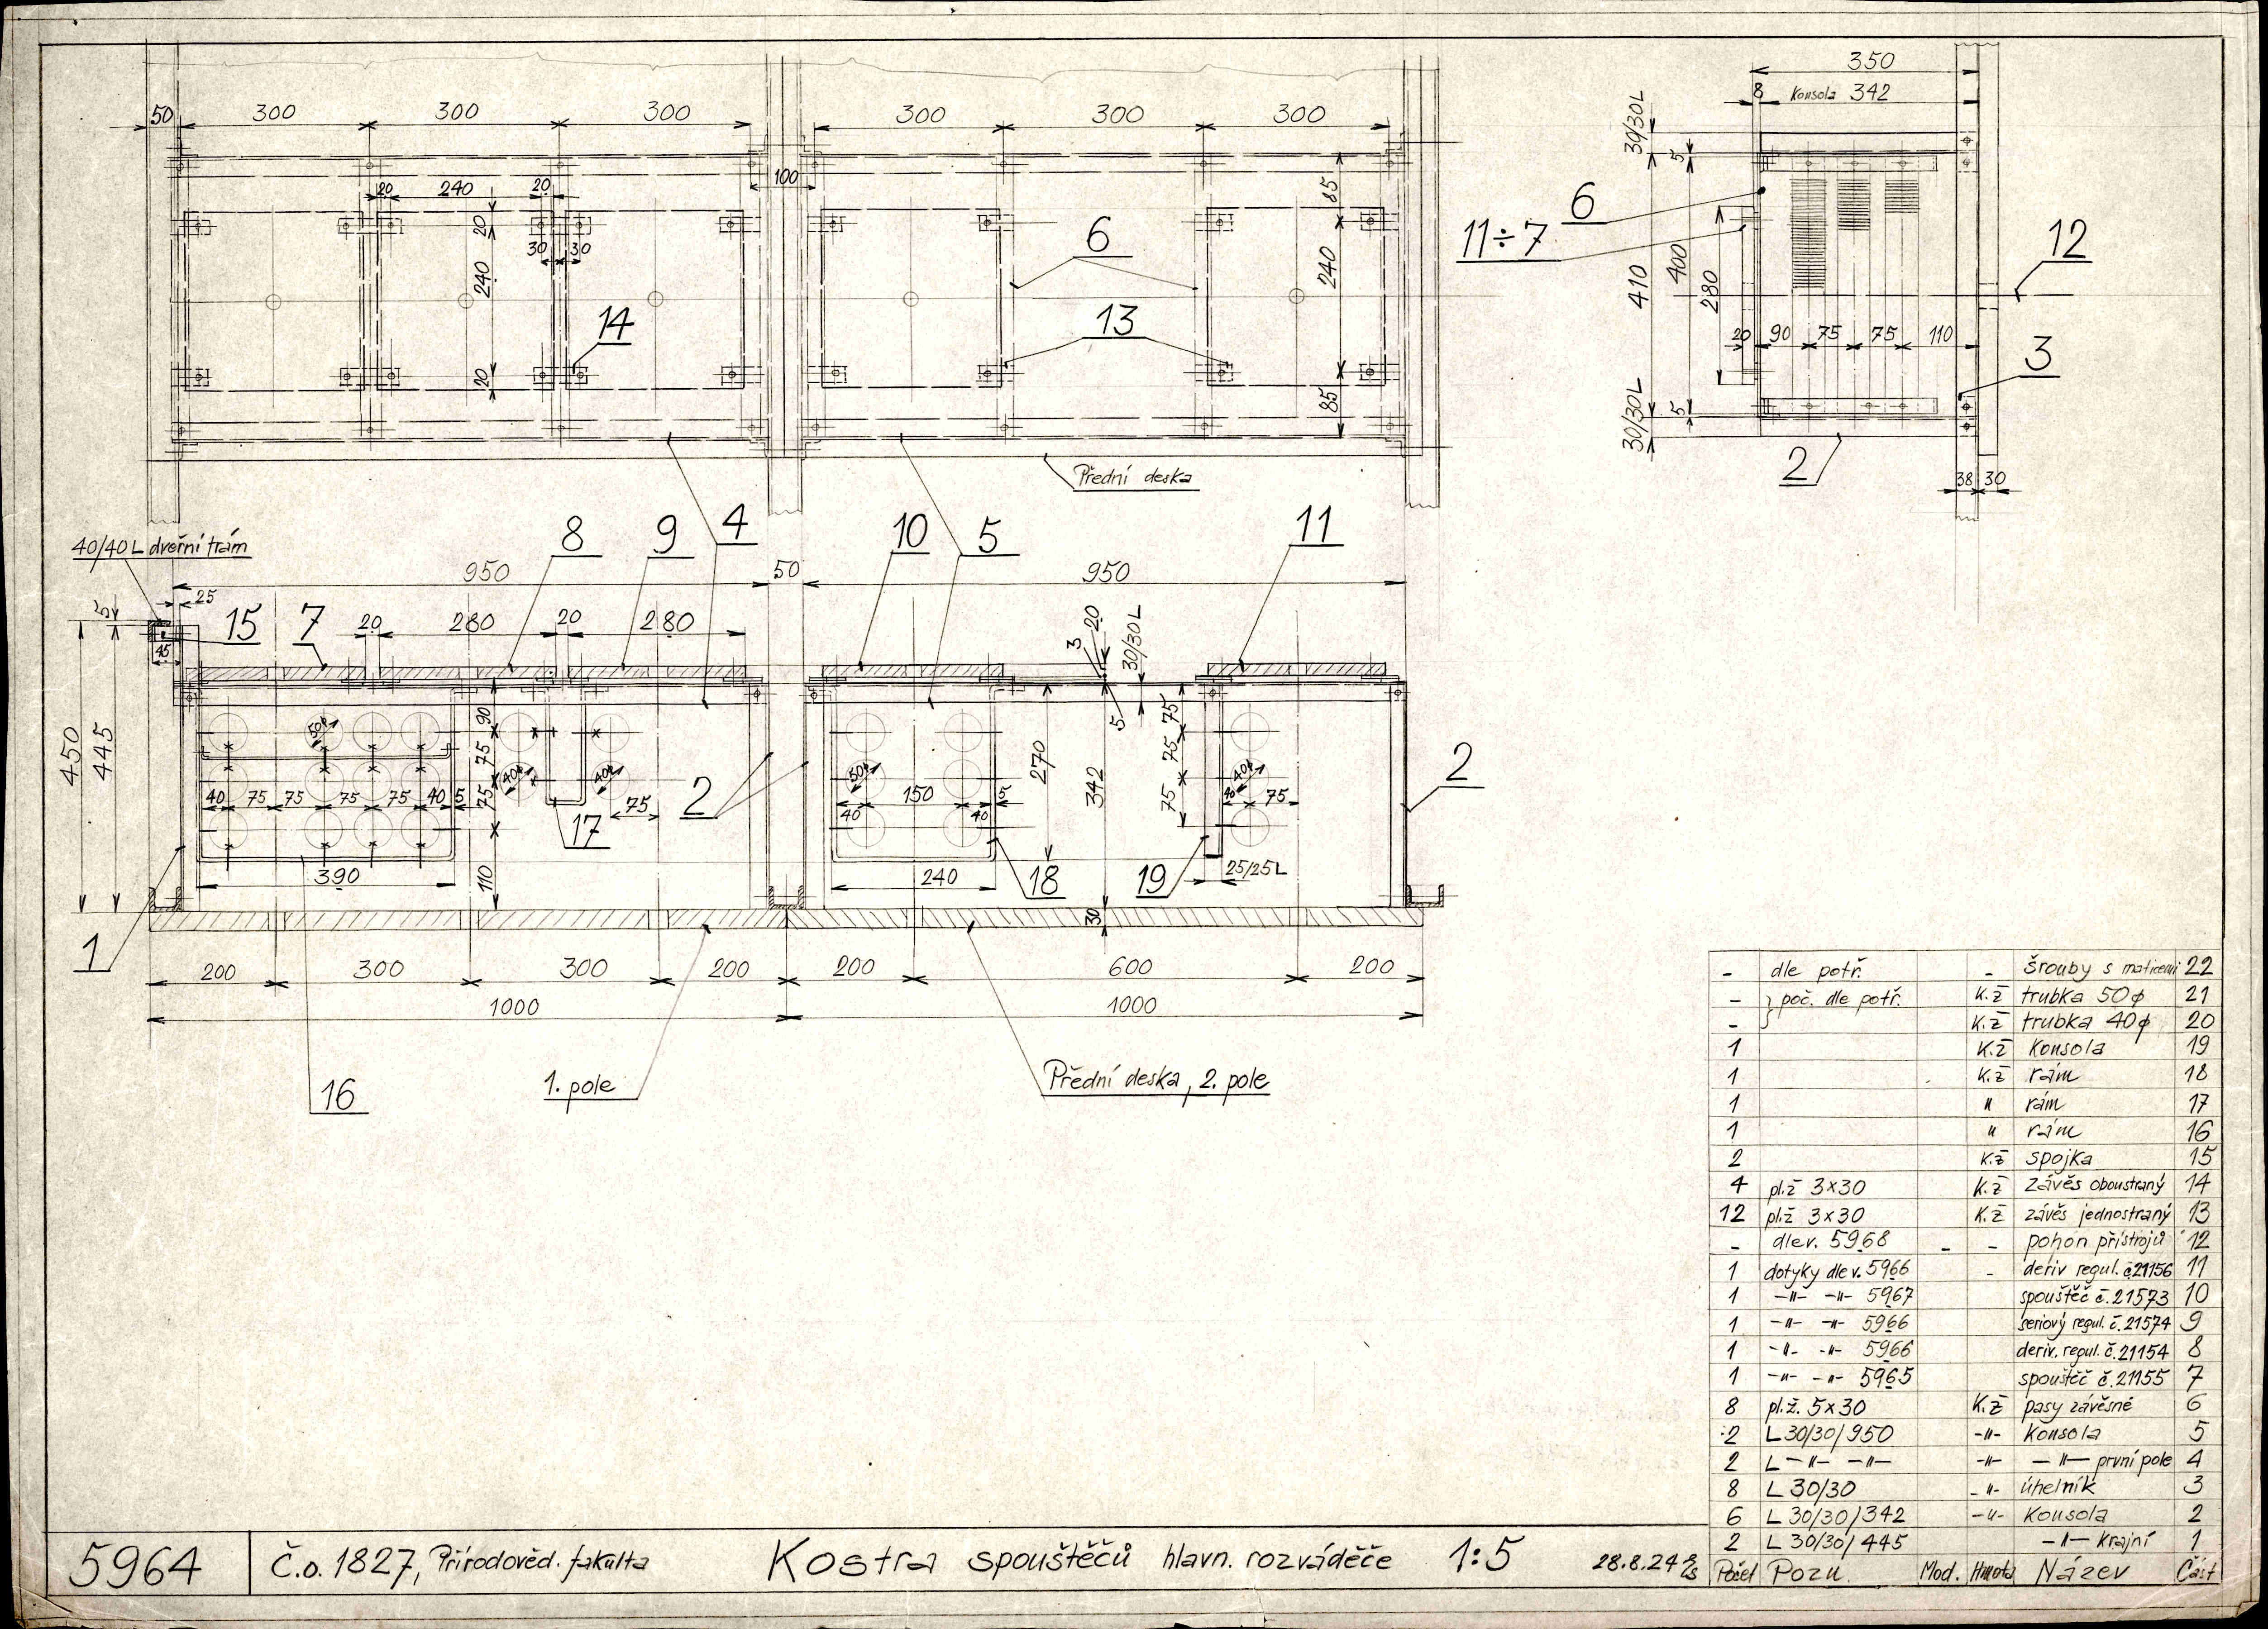 50 300 300 300 300 300 300
20 240 20 100
20 240 20
30 30
85 240 85
14 6 13
Přední deska
350
8 Konsola 342
30/30L
5
6
11÷7
12
410 400 280
20 90 75 75 110
3
30/30L 5
2
38 30
40/40L dveřní trám
8 9 4 10 5 11
950 50 950
25
5
15 7 20 280 20 280
45
3 20 30/30L
450 445
50φ 90 75 75 110
40φ 40φ
40 75 75 75 75 40 5
75
17 2
390
50φ 150 5
40 40
240
18
270 342 5
75 75 75
40φ
40 75
19 25/25L
2
30
1
200 300 300 200 200 600 200
1000 1000
16
1. pole
Přední deska, 2. pole
- dle potř. - šrouby s maticemi 22
- } poč. dle potř. K.ž trubka 50φ 21
- K.ž trubka 40φ 20
1 K.ž Konsola 19
1 K.ž rám 18
1 " rám 17
1 " rám 16
2 K.ž spojka 15
4 pl.ž 3×30 K.ž závěs oboustraný 14
12 pl.ž 3×30 K.ž závěs jednostraný 13
- dle v. 5968 - - pohon přístrojů 12
1 dotyky dle v. 5966 - deriv regul. č.21156 11
1 -"- -"- 5967 spouštěč č.21573 10
1 -"- -"- 5966 seriový regul. č.21574 9
1 -"- -"- 5966 deriv. regul. č.21154 8
1 -"- -"- 5965 spouštěč č.21155 7
8 pl.ž. 5×30 K.ž pasy závěsné 6
2 L 30/30/950 -"- Konsola 5
2 L -"- -"- -"- -"- první pole 4
8 L 30/30 -"- úhelník 3
6 L 30/30/342 -"- Konsola 2
2 L 30/30/445 -"- krajní 1
Počet Pozn. Mod. Hmota Název Část
5964 Č.o. 1827, Přírodověd. fakulta Kostra spouštěčů hlavn. rozváděče 1:5 28.8.24